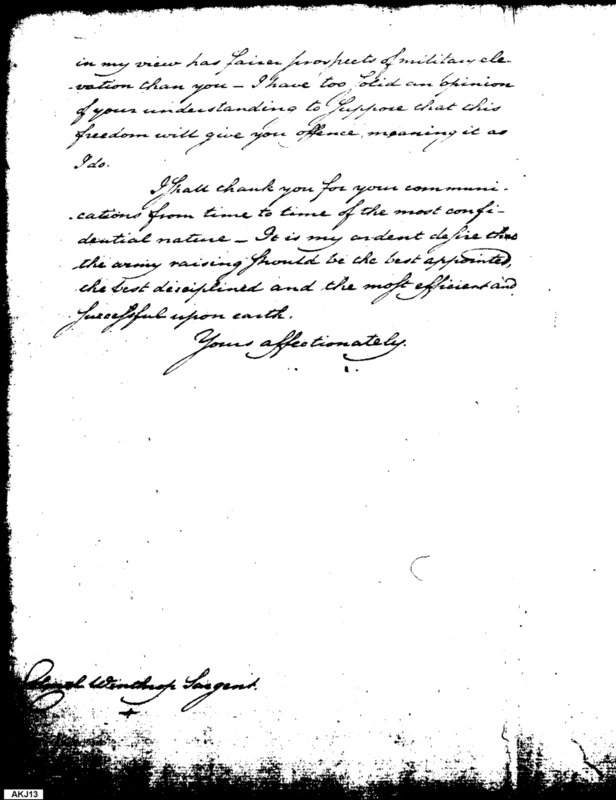 in my view has fairer prospects of military ele-
-vation than you — I have too solid an opinion
of your understanding to suppose that this
freedom will give you offence, meaning it as
I do.
I shall thank you for your communi-
-cations from time to time of the most confi-
dential nature — It is my ardent desire that
the army raising should be the best appointed,
the best disciplined and the most efficient and
successful upon earth.
Yours affectionately.
Winthrop Sargent.
AKJ13